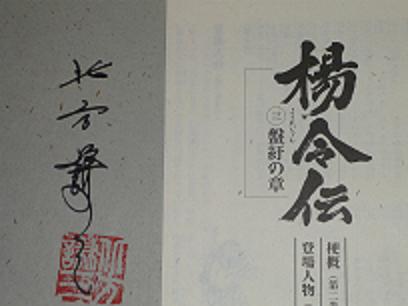 楊令伝
㊂ 盤紆の章
梗概
登場人物
北方謙三